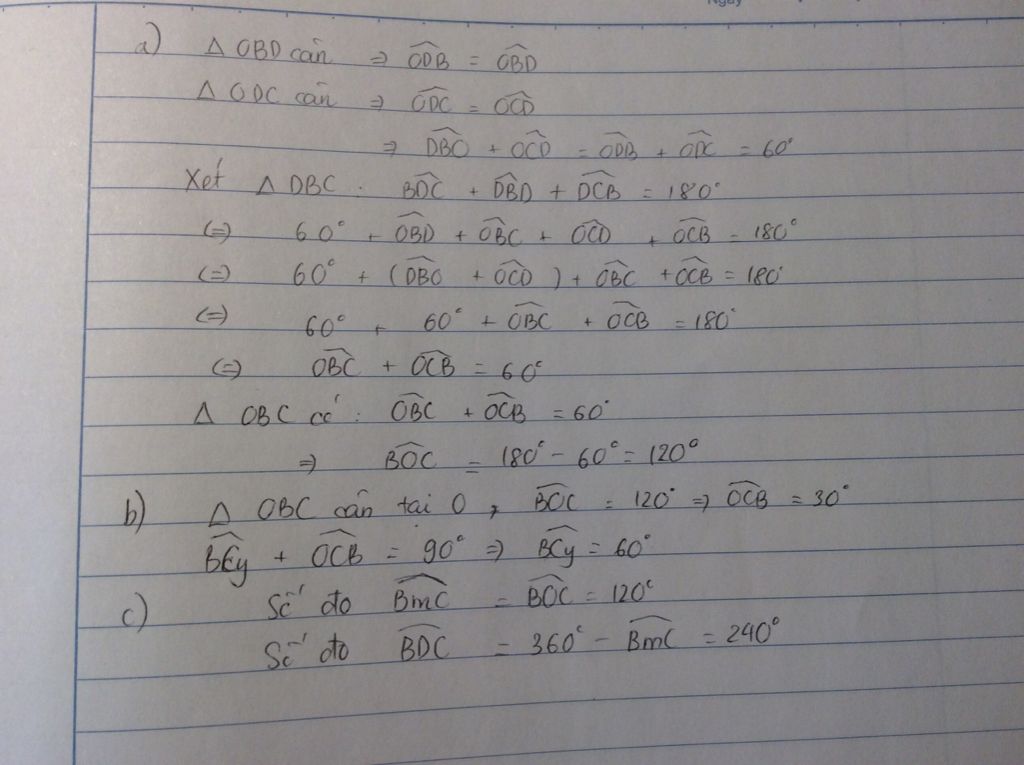 Ngày
a) Δ OBD cân ⇒ \widehat{ODB} = \widehat{OBD}
Δ ODC cân ⇒ \widehat{ODC} = \widehat{OCD}
⇒ \widehat{DBO} + \widehat{OCD} = \widehat{ODB} + \widehat{ODC} = 60°
Xét Δ DBC : \widehat{BDC} + \widehat{DBD} + \widehat{DCB} = 180°
(=) 60° + \widehat{OBD} + \widehat{OBC} + \widehat{OCD} + \widehat{OCB} = 180°
(=) 60° + (\widehat{DBO} + \widehat{OCD}) + \widehat{OBC} + \widehat{OCB} = 180°
(=) 60° + 60° + \widehat{OBC} + \widehat{OCB} = 180°
(=) \widehat{OBC} + \widehat{OCB} = 60°
Δ OBC có : \widehat{OBC} + \widehat{OCB} = 60°
⇒ \widehat{BOC} = 180° - 60° = 120°
b) Δ OBC cân tại O , \widehat{BOC} = 120° ⇒ \widehat{OCB} = 30°
\widehat{BCy} + \widehat{OCB} = 90° ⇒ \widehat{BCy} = 60°
c) Số đo \widehat{BmC} = \widehat{BOC} = 120°
Số đo \widehat{BDC} = 360° - \widehat{BmC} = 240°